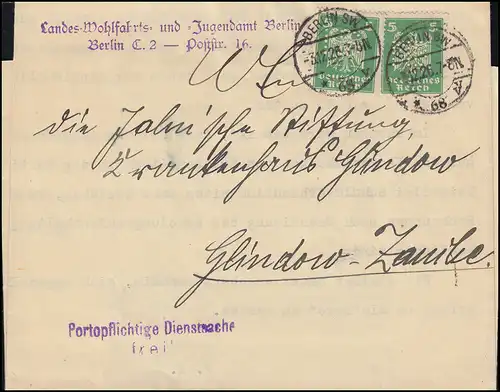 Landes-Wohlfahrts- und Jugendamt Berlin
Berlin C. 2 — Poststr. 16.
BERLIN SW
* 68
5
Deutsches Reich
BERLIN SW
* 68
An
die Jahn'sche Stiftung,
Krankenhaus Glindow
Glindow-Zauche.
Portopflichtige Dienstsache
frei